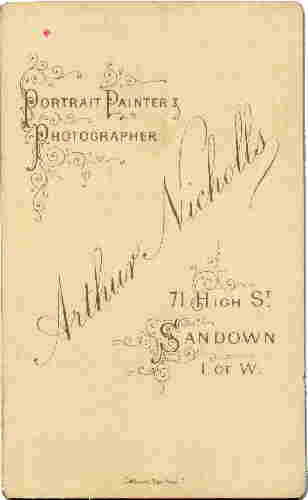 PORTRAIT PAINTER &
PHOTOGRAPHER
Arthur Nicholls
71 HIGH ST
SANDOWN
I OF W.